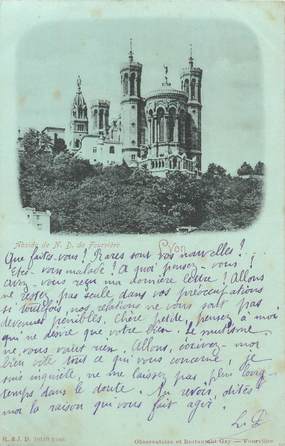 Abside de N. D. de Fourvière
Lyon
Que faites-vous ! Rares sont vos nouvelles !
Etes-vous malade ? A quoi pensez-vous ?
avez-vous reçu ma dernière lettre ? Allons
ne restez pas seule dans vos préoccupations
si toutefois, nos relations ne vous sont pas
devenues pénibles. Chère petite, pensez à moi
qui ne désire que votre bien. Le mutisme
ne vous vaut rien. Allons, écrivez-moi
bien vite tout ce qui vous concerne, je
suis inquiète, ne me laissez pas plus long-
temps dans le doute. Au revoir, dites
moi la raison qui vous fait agir !
B. & J. D.
Observatoire et Restaurant Gay - Fourvière